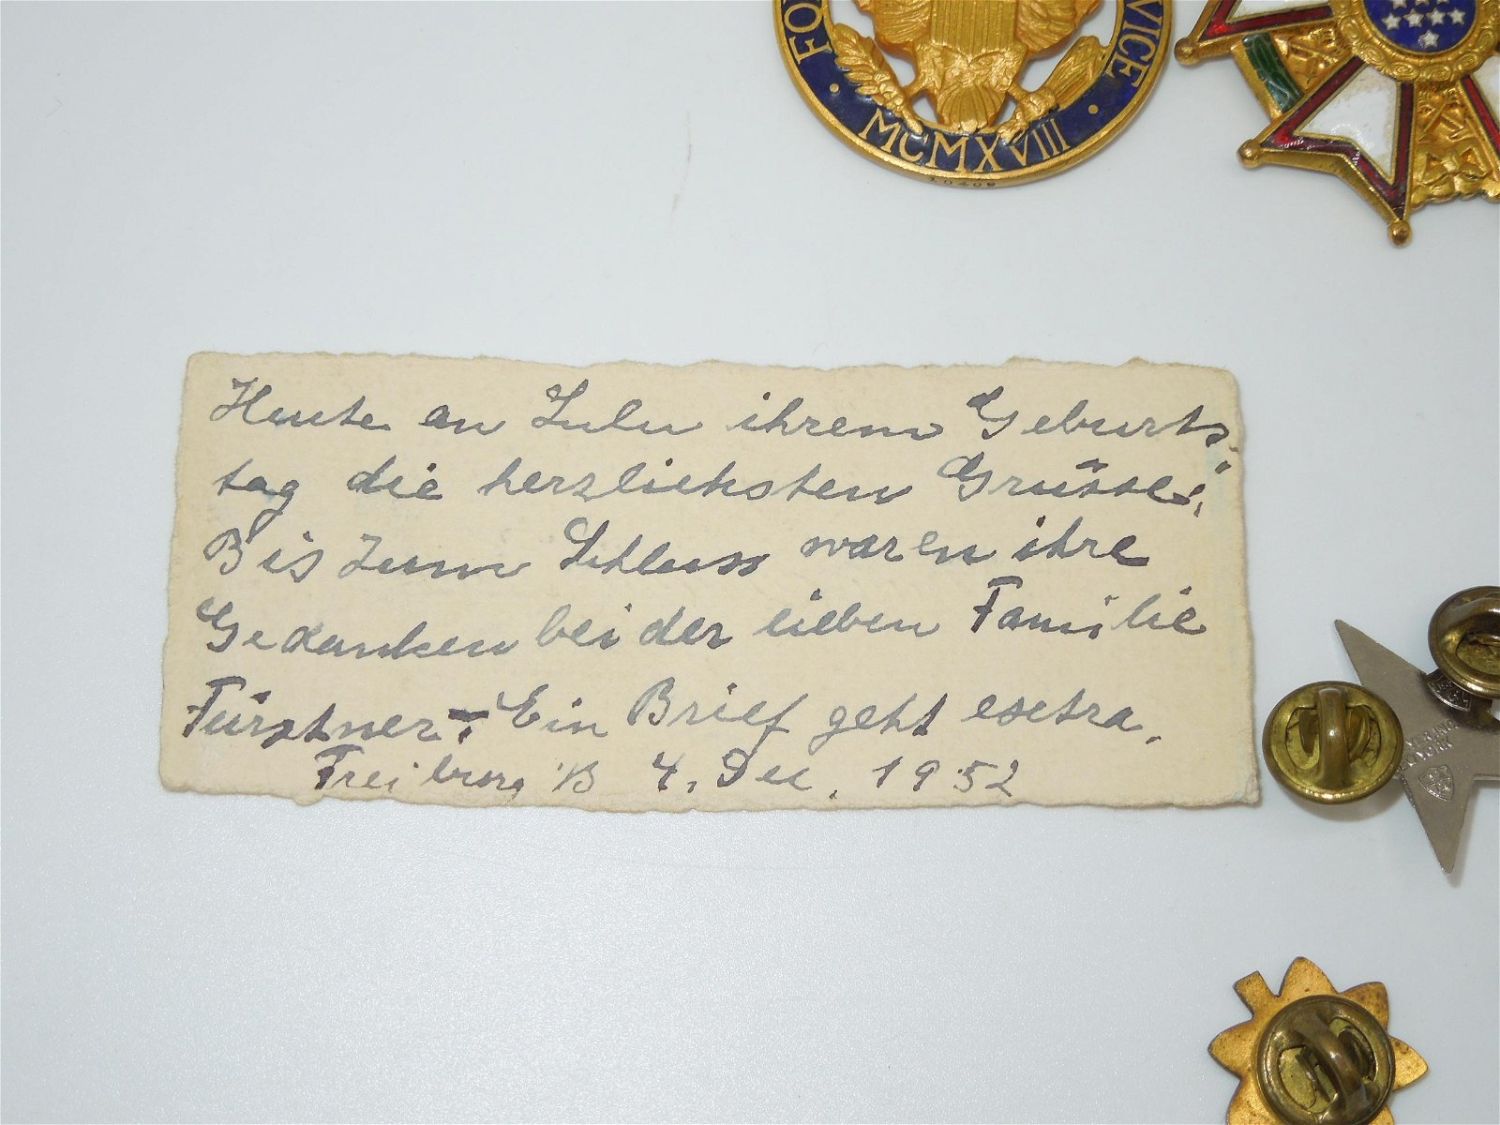 FO
VICE
• MCMXVIII •
Heute an Lulu ihrem Geburts-
tag die herzlichsten Grüsse,
Bis zum Schluss waren ihre
Gedanken bei der lieben Familie
Fürstner - Ein Brief geht extra.
Freiburg /B 4. Dec. 1952